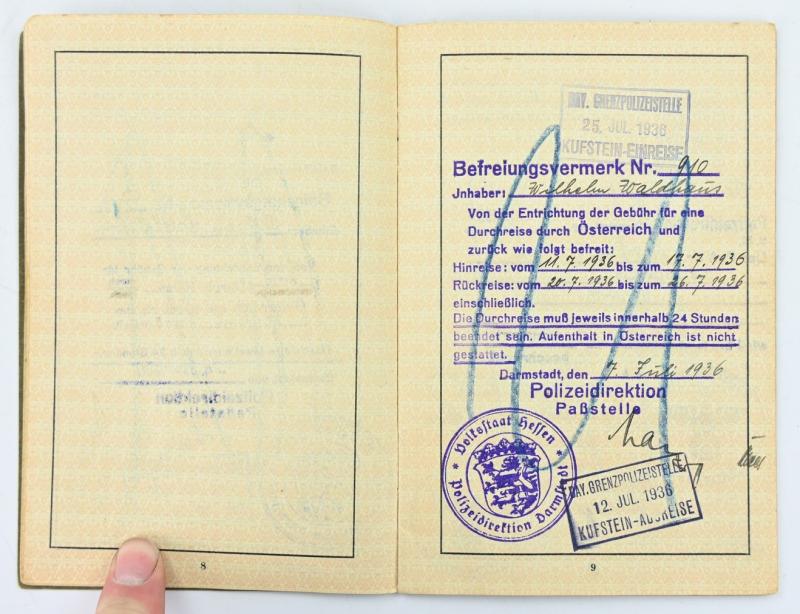 BAY. GRENZPOLIZEISTELLE
25. JUL. 1936
KUFSTEIN-EINREISE
Befreiungsvermerk Nr. 910
Jnhaber: Wilhelm Waldhaus
Von der Entrichtung der Gebühr für eine
Durchreise durch Österreich und
zurück wie folgt befreit:
Hinreise: vom 11. 7 1936 bis zum 17. 7. 1936
Rückreise: vom 20. 7. 1936 bis zum 26. 7. 1936
einschließlich.
Die Durchreise muß jeweils innerhalb 24 Stunden
beendet sein. Aufenthalt in Österreich ist nicht
gestattet.
Darmstadt, den 7. Juli 1936
Polizeidirektion
Paßstelle
Volksstaat Hessen
Polizeidirektion Darmstadt
BAY. GRENZPOLIZEISTELLE
12. JUL. 1936
KUFSTEIN-AUSREISE
8
9